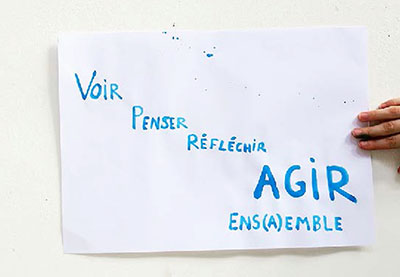 VOIR
PENSER
RÉFLÉCHIR
AGIR
ENS(A)EMBLE